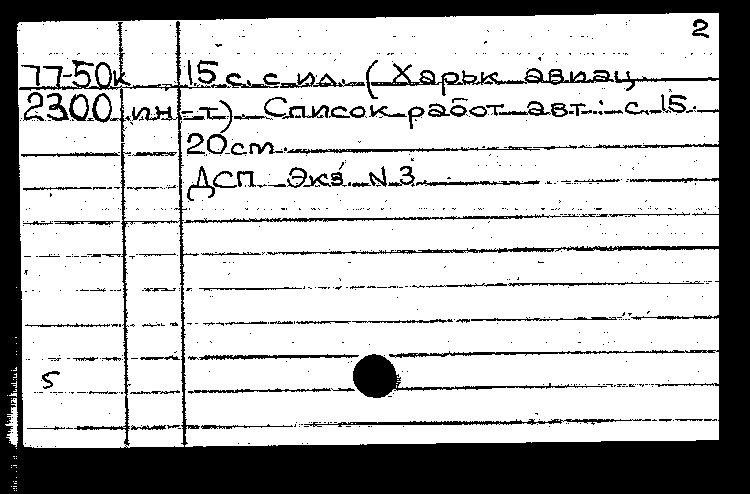 2
77-50к 15 с. с ил. (Харьк авиац
2300 ин-т). Список работ авт: с 15.
20 см.
ДСП Экз N 3.
5